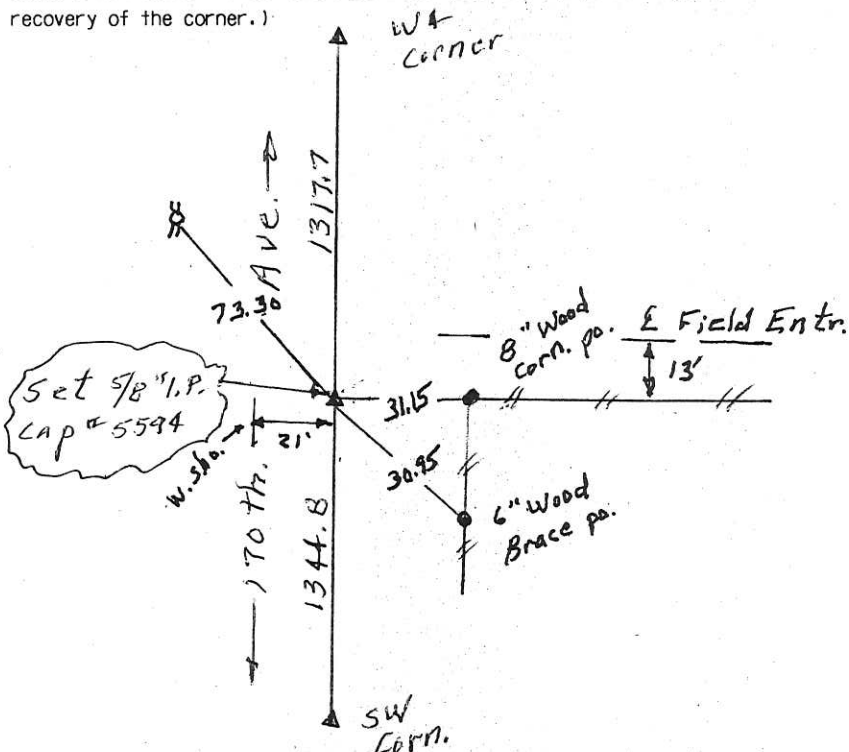 recovery of the corner.)
W 1/4
Corner
1317.7
Ave.
73.30
8" Wood
Corn. po.
℄ Field Entr.
13'
Set 5/8" I.P.
Cap # 5594
31.15
21'
W. Sho.
30.95
6" Wood
Brace po.
170th.
1344.8
SW
Corn.